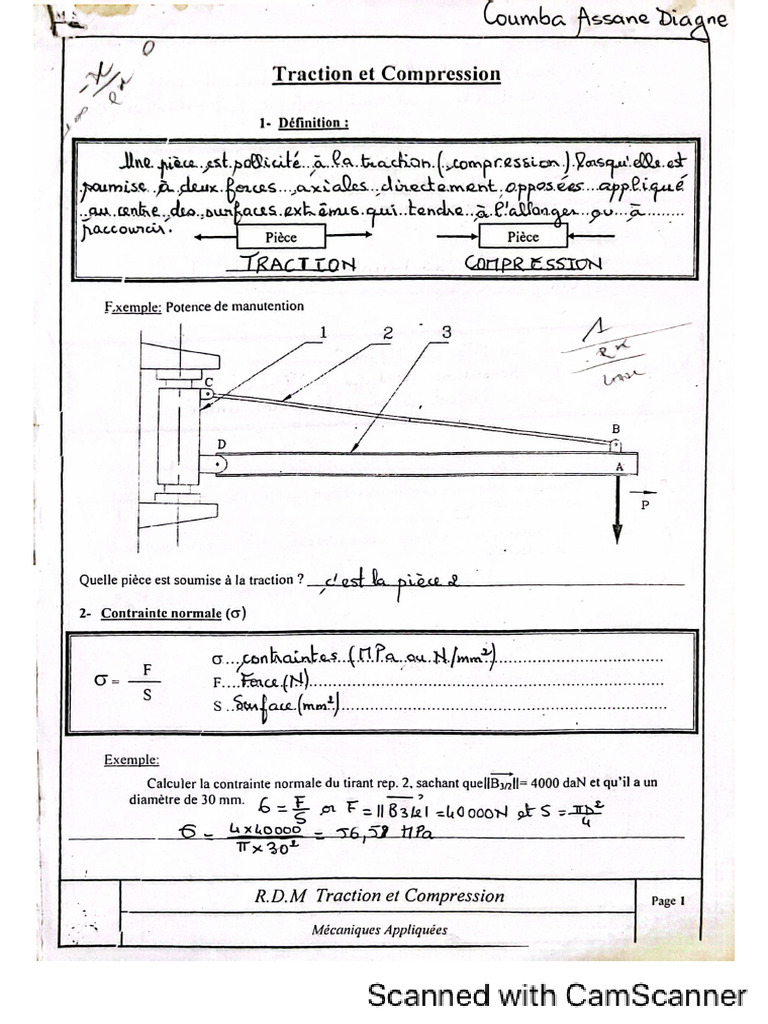 Coumba Assane Diagne
M.S
Traction et Compression
1- Définition :
Une pièce est sollicité à la traction (compression) lorsqu'elle est
soumise à deux forces axiales directement opposées appliqué
au centre des surfaces extrêmis qui tendre à l'allonger ou à
raccourcir.
Pièce Pièce
TRACTION COMPRESSION
Exemple: Potence de manutention
1 2 3
C
B
D
A
P
Quelle pièce est soumise à la traction ? c'est la pièce 2
2- Contrainte normale (σ)
σ = F/S
σ contraintes (MPa ou N/mm²)
F Force (N)
S Surface (mm²)
Exemple:
Calculer la contrainte normale du tirant rep. 2, sachant que||B3/2||= 4000 daN et qu'il a un
diamètre de 30 mm. σ = F/S or F = ||B3/2|| = 40000N et S = πD²/4
σ = 4x40000/π x 30² = 56,58 MPa
R.D.M Traction et Compression
Page 1
Mécaniques Appliquées
Scanned with CamScanner